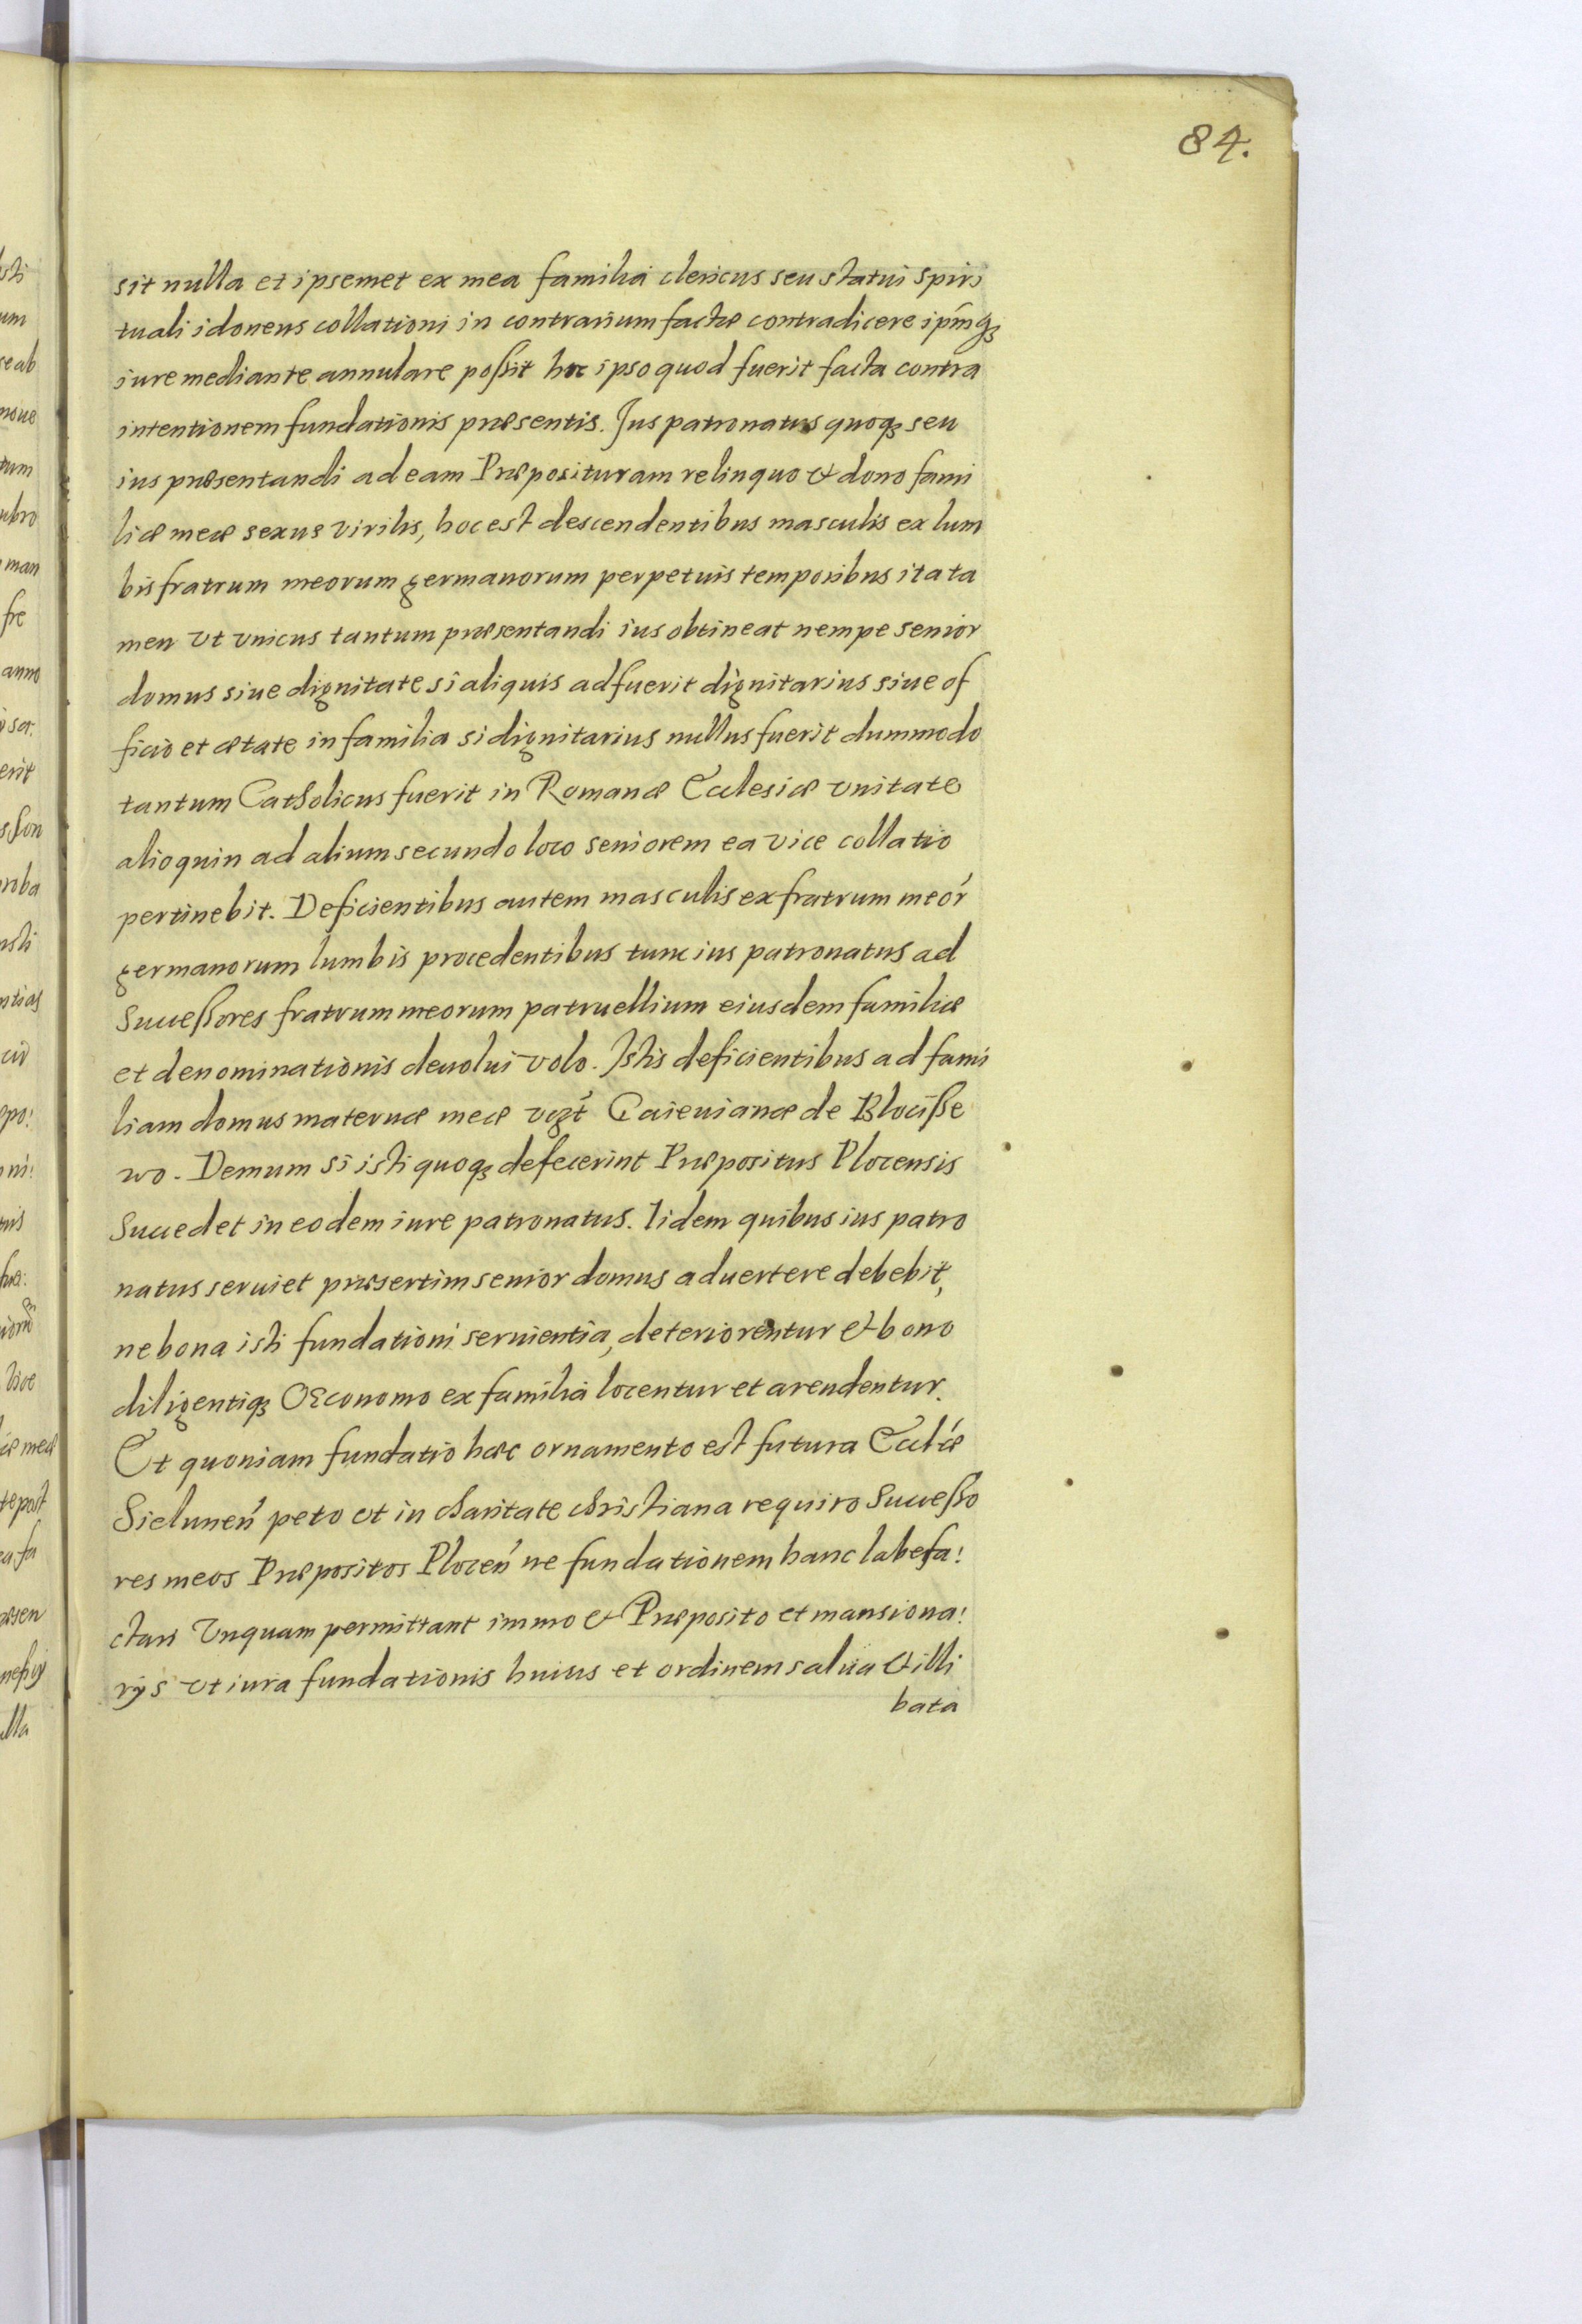 84.
sit nulla et ipsemet ex mea familia clericus seu statui spiri
tuali idoneus collationi in contrarium factæ contradicere ip̃mq3
iure mediante annulare poßit hoc ipso quod fuerit facta contra
intentionem fundationis præsentis. Jus patronatus quoq3 seu
ius præsentandi ad eam Præposituram relinquo & dono fami
liæ meæ sexus virilis, hoc est descendentibus masculis ex lum
bis fratrum meorum germanorum perpetuis temporibus ita ta
men vt vnicus tantum præsentandi ius obtineat nempe senior
domus siue dignitate si aliquis adfuerit dignitarius siue of
ficio et ætate in familia si dignitarius nullus fuerit dummodo
tantum Catholicus fuerit in Romanæ Ecclesiæ vnitate
alioquin ad alium secundo loco seniorem ea vice collatio
pertinebit. Deficientibus autem masculis ex fratrum meor̃
germanorum lumbis procedentibus tunc ius patronatus ad
Succeßores fratrum meorum patruellium eiusdem familiæ
et denominationis deuolui volo. Istis deficientibus ad fami
liam domus maternæ meæ vcz̃t Caieuianæ de Blociße
wo. Demum si isti quoq3 defecerint Præpositus Plocensis
Succedet in eodem iure patronatus. Iidem quibus ius patro
natus seruiet præsertim senior domus aduertere debebit,
ne bona isti fundationi seruientia, deteriorentur & bono
diligentiq3 Œconomo ex familia locentur et arendentur.
Et quoniam fundatio hæc ornamento est futura Eccl̃æ
Sielunen̄ peto et in charitate christiana requiro Succeßo
res meos Præpositos Plocen̄ ne fundationem hanc labefa:
ctari Vnquam permittant immo & Præposito et mansiona:
rijs vt iura fundationis huius et ordinem salua & illi
bata